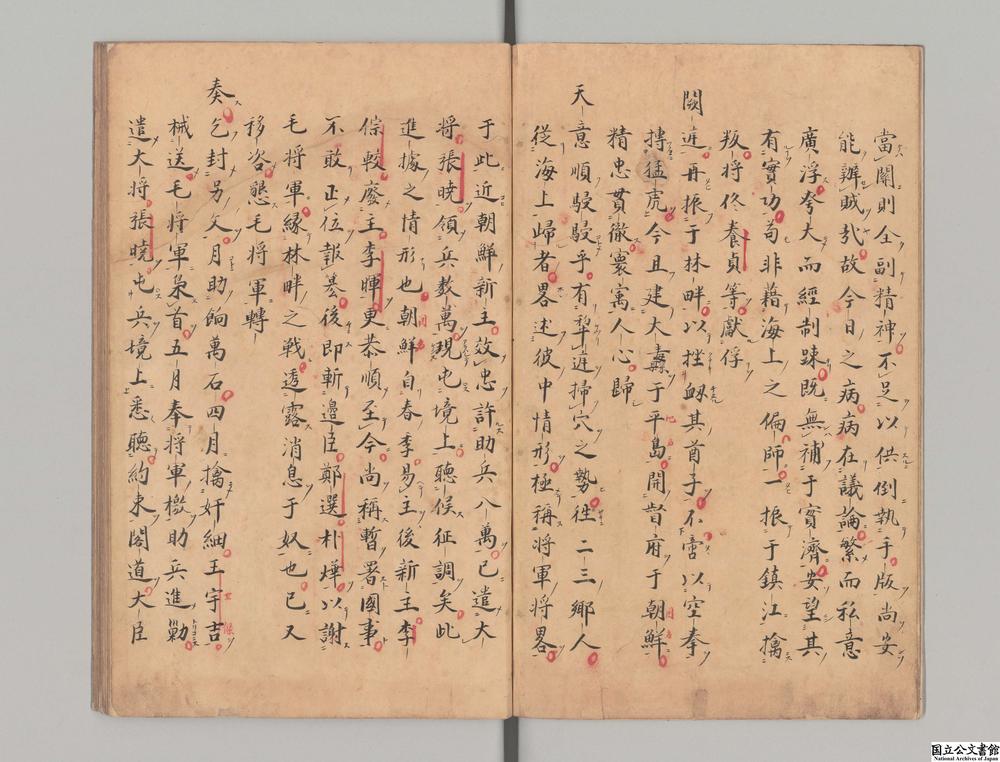 當關則全副精神不足以供倒執手版尚安
能辦賊哉故今日之病病在議論繁而私意
廣浮夸大而經制踈既無補于實濟安望其
有實功苟非藉海上之偏師一振于鎮江擒
叛將佟養貞等獻俘
闕廷再振于林畔以挫衂其酋子不啻以空拳
搏猛虎今且建大纛于平島開督府于朝鮮
精忠貫徹寰寓人心歸
天意順駸駸乎有犂廷掃穴之勢徃二三鄉人
從海上歸者畧述彼中情形極稱將軍將畧
于此近朝鮮新主效忠許助兵八萬已遣大
將張曉領兵数萬現屯境上聽候征調矣此
進據之情形也朝鮮自春李易主後新主李
倧較廢主李暉更恭順至今尚稱暫署國事
不敢正位報蒃後即斬邉臣鄭選朴燁以謝
毛將軍緣林畔之戰透露消息于奴也已又
移咨懇毛將軍轉
奏乞封另文月助餉萬石四月擒奸細王宇吉
械送毛將軍梟首五月奉將軍檄助兵進勦
遣大將張曉屯兵境上悉聽約束閣道大臣
国立公文書館
National Archives of Japan